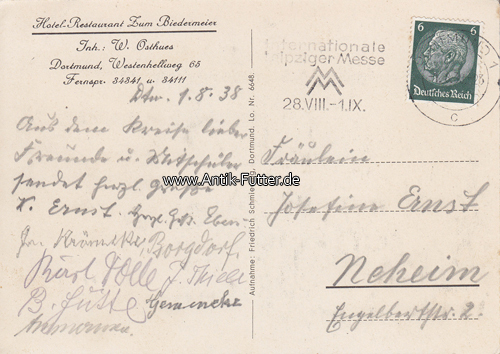 Hotel-Restaurant Zum Biedermeier
Inh.: W. Osthues
Dortmund, Westenhellweg 65
Fernspr. 34341 u. 34111
Dtm. 1.8.38
Aus dem Kreise lieber
Freunde u. Mitschüler
sendet herzl. Grüße
K. Ernst.
Borgdorf,
Kurt Tölle
B. Jütte
Aufnahme: Friedrich Dortmund. Lo. Nr. 6648.
www.Antik-Futter.de
Internationale
Leipziger Messe
MM
28.VIII.-1.IX.
6 6
Deutsches Reich
c
Fräulein
Josefine Ernst
Neheim
Engelbertstr. 2.